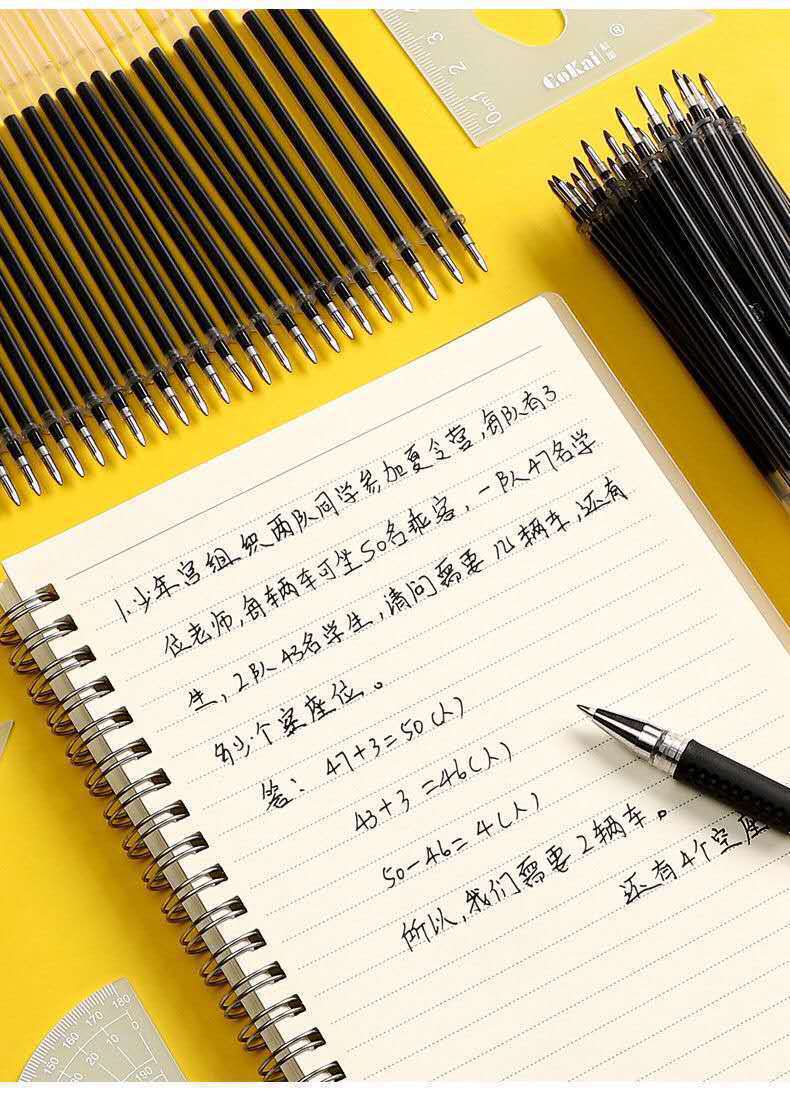 3
2
1
0cm
CoKai
®
1.少年宫组织两队同学参加夏令营,每队有3
位老师,每辆车可坐50名乘客,一队47名学
生,2队43名学生,请问需要几辆车,还有
多少个空座位。
答: 47+3=50(人)
43+3=46(人)
50-46=4(人)
所以,我们需要2辆车。
还有4个空座
180
170
160
150
0
10
20
180
190